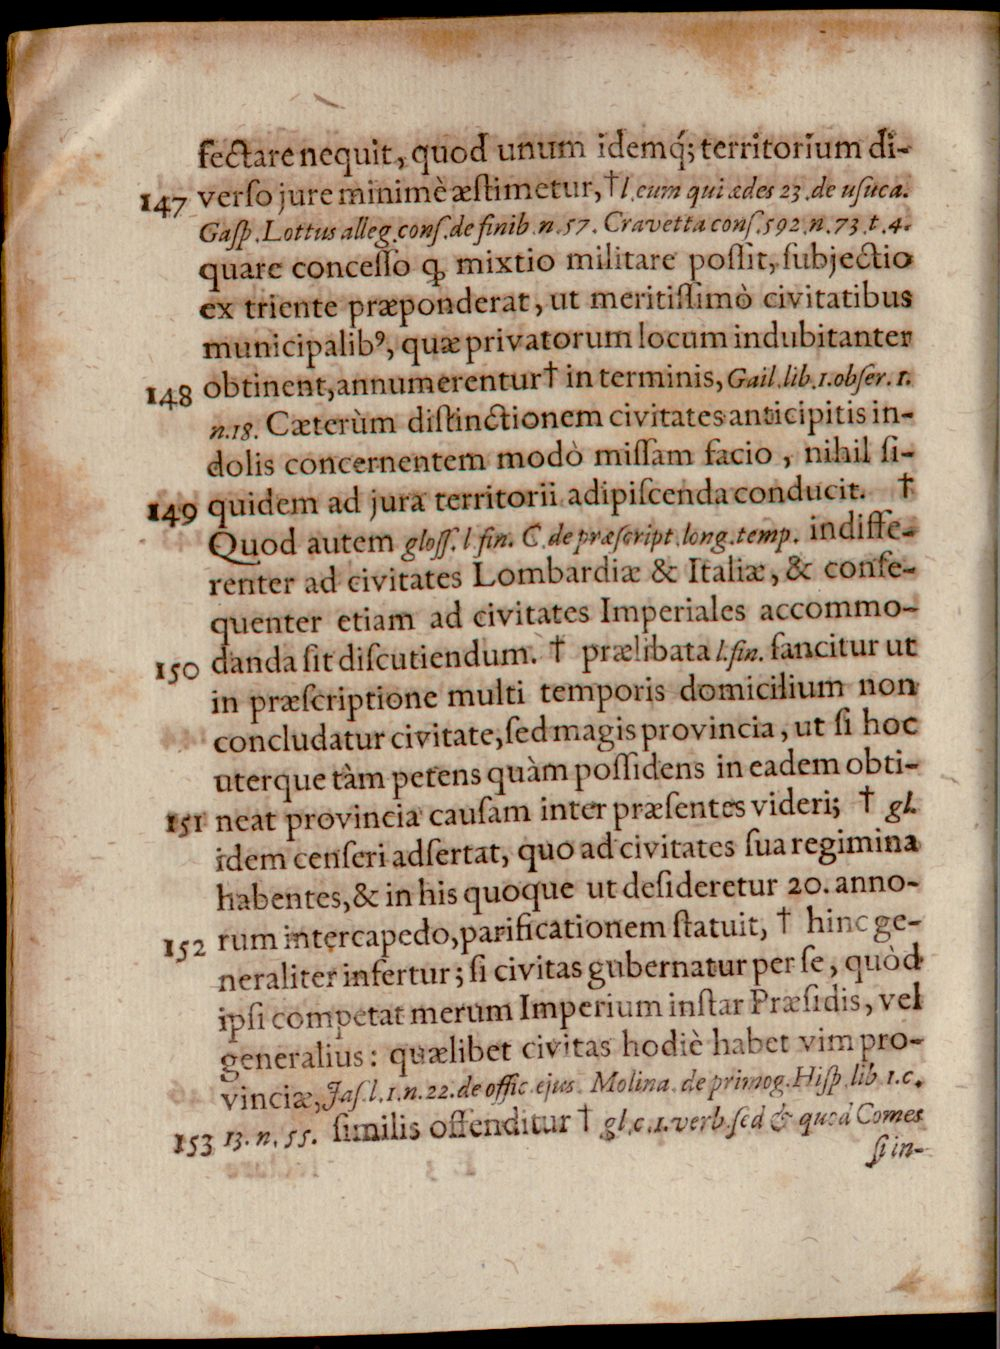 fectare nequit, quod unum idemq́; territorium di-
147 verso jure minimè æstimetur, † l. eum qui ædes 23. de usuca.
Gasp. Lottus alleg. cons. de finib. n. 57. Cravetta cons. 592. n. 73. t. 4.
quare concesso ꝙ mixtio militare possit, subjectio
ex triente præponderat, ut meritissimò civitatibus
municipalibꝰ, quæ privatorum locum indubitanter
148 obtinent, annumerentur † in terminis, Gail. lib. 1. obser. 1.
n. 18. Cæterùm distinctionem civitates anticipitis in-
dolis concernentem modò missam facio, nihil si-
149 quidem ad jura territorii adipiscenda conducit. †
Quod autem gloss. l. fin. C. de præscript. long. temp. indiffe-
renter ad civitates Lombardiæ & Italiæ, & conse-
quenter etiam ad civitates Imperiales accommo-
150 danda sit discutiendum. † prælibata l. fin. sancitur ut
in præscriptione multi temporis domicilium non
concludatur civitate, sed magis provincia, ut si hoc
uterque tàm petens quàm possidens in eadem obti-
151 neat provincia causam inter præsentes videri; † gl.
idem censeri adsertat, quo ad civitates sua regimina
habentes, & in his quoque ut desideretur 20. anno-
152 rum intercapedo, parificationem statuit, † hinc ge-
neraliter infertur; si civitas gubernatur per se, quòd
ipsi competat merum Imperium instar Præsidis, vel
generalius: quælibet civitas hodiè habet vim pro-
vinciæ, Jas. l. 1. n. 22. de offic. ejus. Molina. de primog. Hisp. lib. 1. c.
153 13. n. 55. similis offenditur † gl. c. 1. verb. sed & quod Comes
si in-